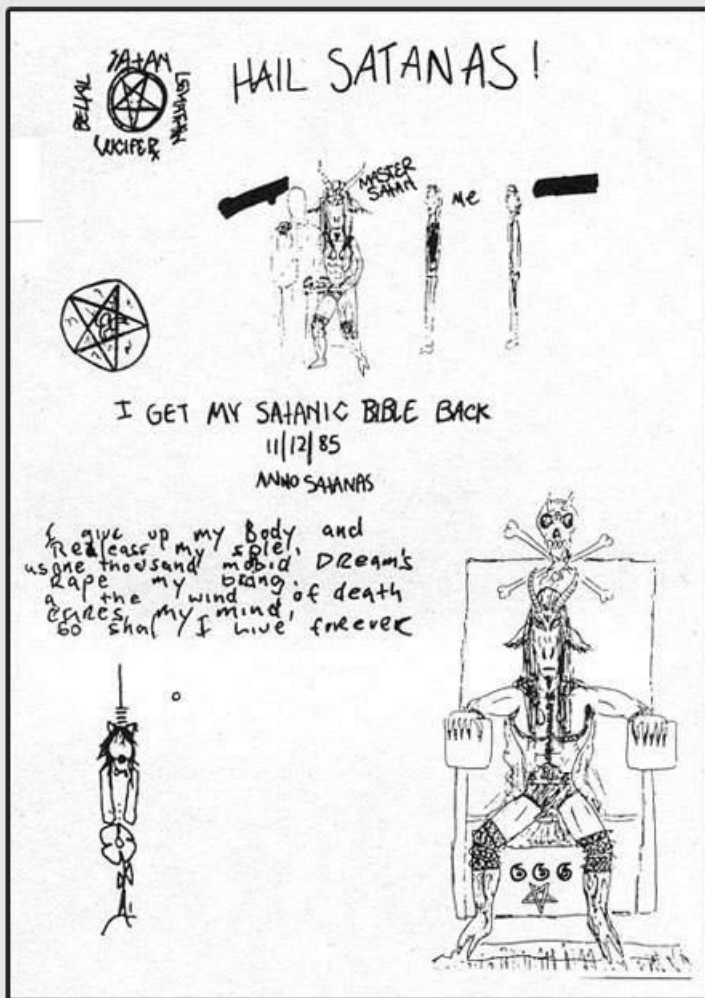 HAIL SATANAS!
SATAN
BELIAL
LEVIATHAN
LUCIFER
MASTER
SATAN
ME
I GET MY SATANIC BIBLE BACK
11/12/85
ANNO SATANAS
I give up my Body and
Realease my sole,
us one thousand mobid DReam's
Rape my
a the wind of death
my mind,
so shal I Live forever
666